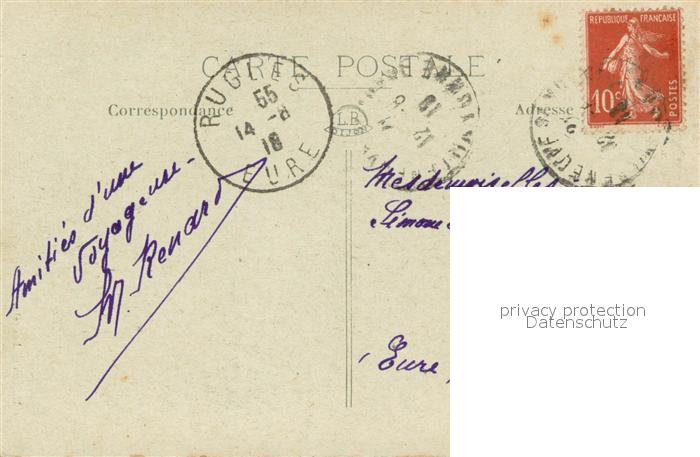 REPUBLIQUE FRANÇAISE
POSTES
10c
CARTE POSTALE
RUGLES
55
14 -8
18
EURE
Correspondance
L.B.
DIJON
Adresse
Amitiés d'une
Voyageuse -
M. Renard
Mesdemoiselles
Simone
(Eure)
privacy protection
Datenschutz